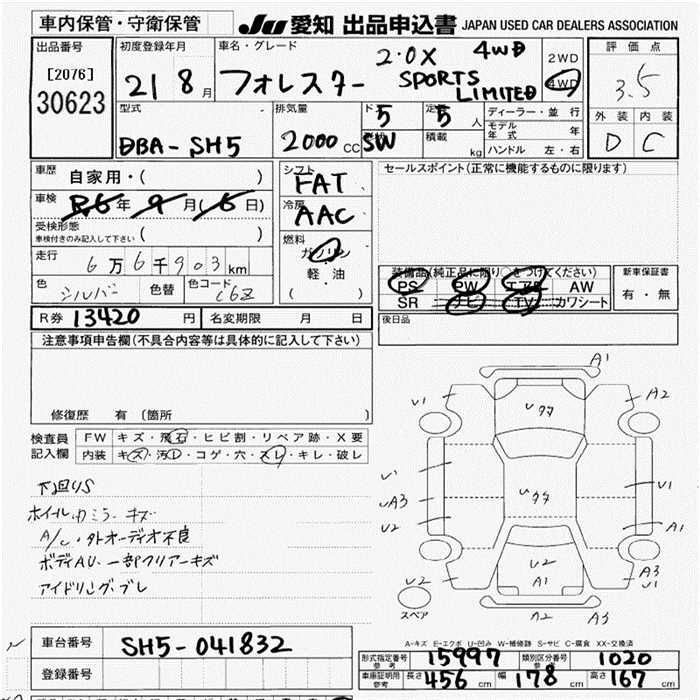 車内保管・守衛保管 JU 愛知 出品申込書 JAPAN USED CAR DEALERS ASSOCIATION
出品番号 初度登録年月 車名・グレード 2.0X 4WD 2WD 評価点
[2076] 21 8月 フォレスター SPORTS LIMITED 4WD 3.5
30623
型式 排気量 ド 5 定 5 人 ディーラー・並行 外装 内装
モデル年式 年
DBA-SH5 2000 CC SW 積載 kg ハンドル 左・右 D C
車歴 自家用・( ) シフト FAT セールスポイント(正常に機能するものに限ります)
車検 R6年 9月(6日) 冷房 AAC
受検形態
車検付きのみ記入して下さい ( ) 燃料
ガソリン
走行 6万6千903km 軽・油 装備品(純正品に限り○をつけてください) 新車保証書
色 シルバー 色替 色コード C6Z ( ) PS PW エアB AW 有・無
SR ナビ TV カワシート
R券 13420 円 名変期限 月 日 後日品
注意事項申告欄(不具合内容等は具体的に記入して下さい)
修復歴 有 (箇所 )
検査員 FW キズ・飛石・ヒビ割・リペア跡・X要
記入欄 内装 キズ・汚レ・コゲ・穴・スレ・キレ・破レ
下廻りS
ホイルカミラーキズ
A/C・外オーディオ不良
ボディAU、一部クリアーキズ
アイドリング、ブレ
A1
U1 A2
Uタタ
U1 U1
UA3 Uタタ
U2 A1
U2 U2 A3
A1 U1
スペア A2 A3
A-キズ E-エクボ U-凹み W-補修跡 S-サビ C-腐食 XX-交換済
車台番号 SH5-041832
登録番号
形式指定番号 参考 15997 類別区分番号 参考 1020
車庫証明用 参考 長さ 456 cm 幅 178 cm 高さ 167 cm